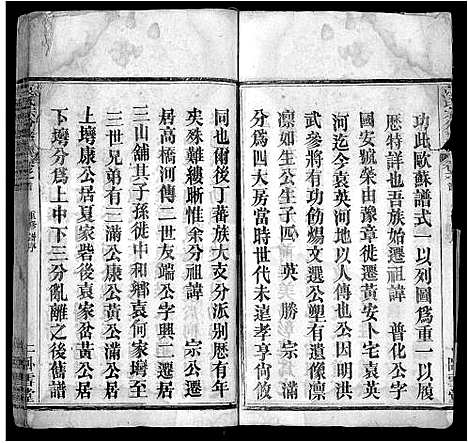 功此歐蘇譜式一以列圖爲重一以履
歴特詳也吾族始遷祖諱 普化公字
安國號榮由豫章徙黃安卜宅袁英
河迄今袁英河以人傳也公因明洪
武參將功勅賜文選公尚有遺像凛
凛如生公生子四 英 勝 宗 滿
分爲四大房當時世代未遠孝享尚餙
同也爾後丁蕃族大支分派别歴有年
矣殊難縷晰惟余分祖諱 宗公遷
居高橋河傳二世友端公字興二遷
三山舖其子孫徙中和鄉袁何家塆至
三世兄弟有三滿公康公黃公滿公居
上塆康公居夏家砦後袁家岔黃公居
下塆分爲上中下三分亂離之後舊譜